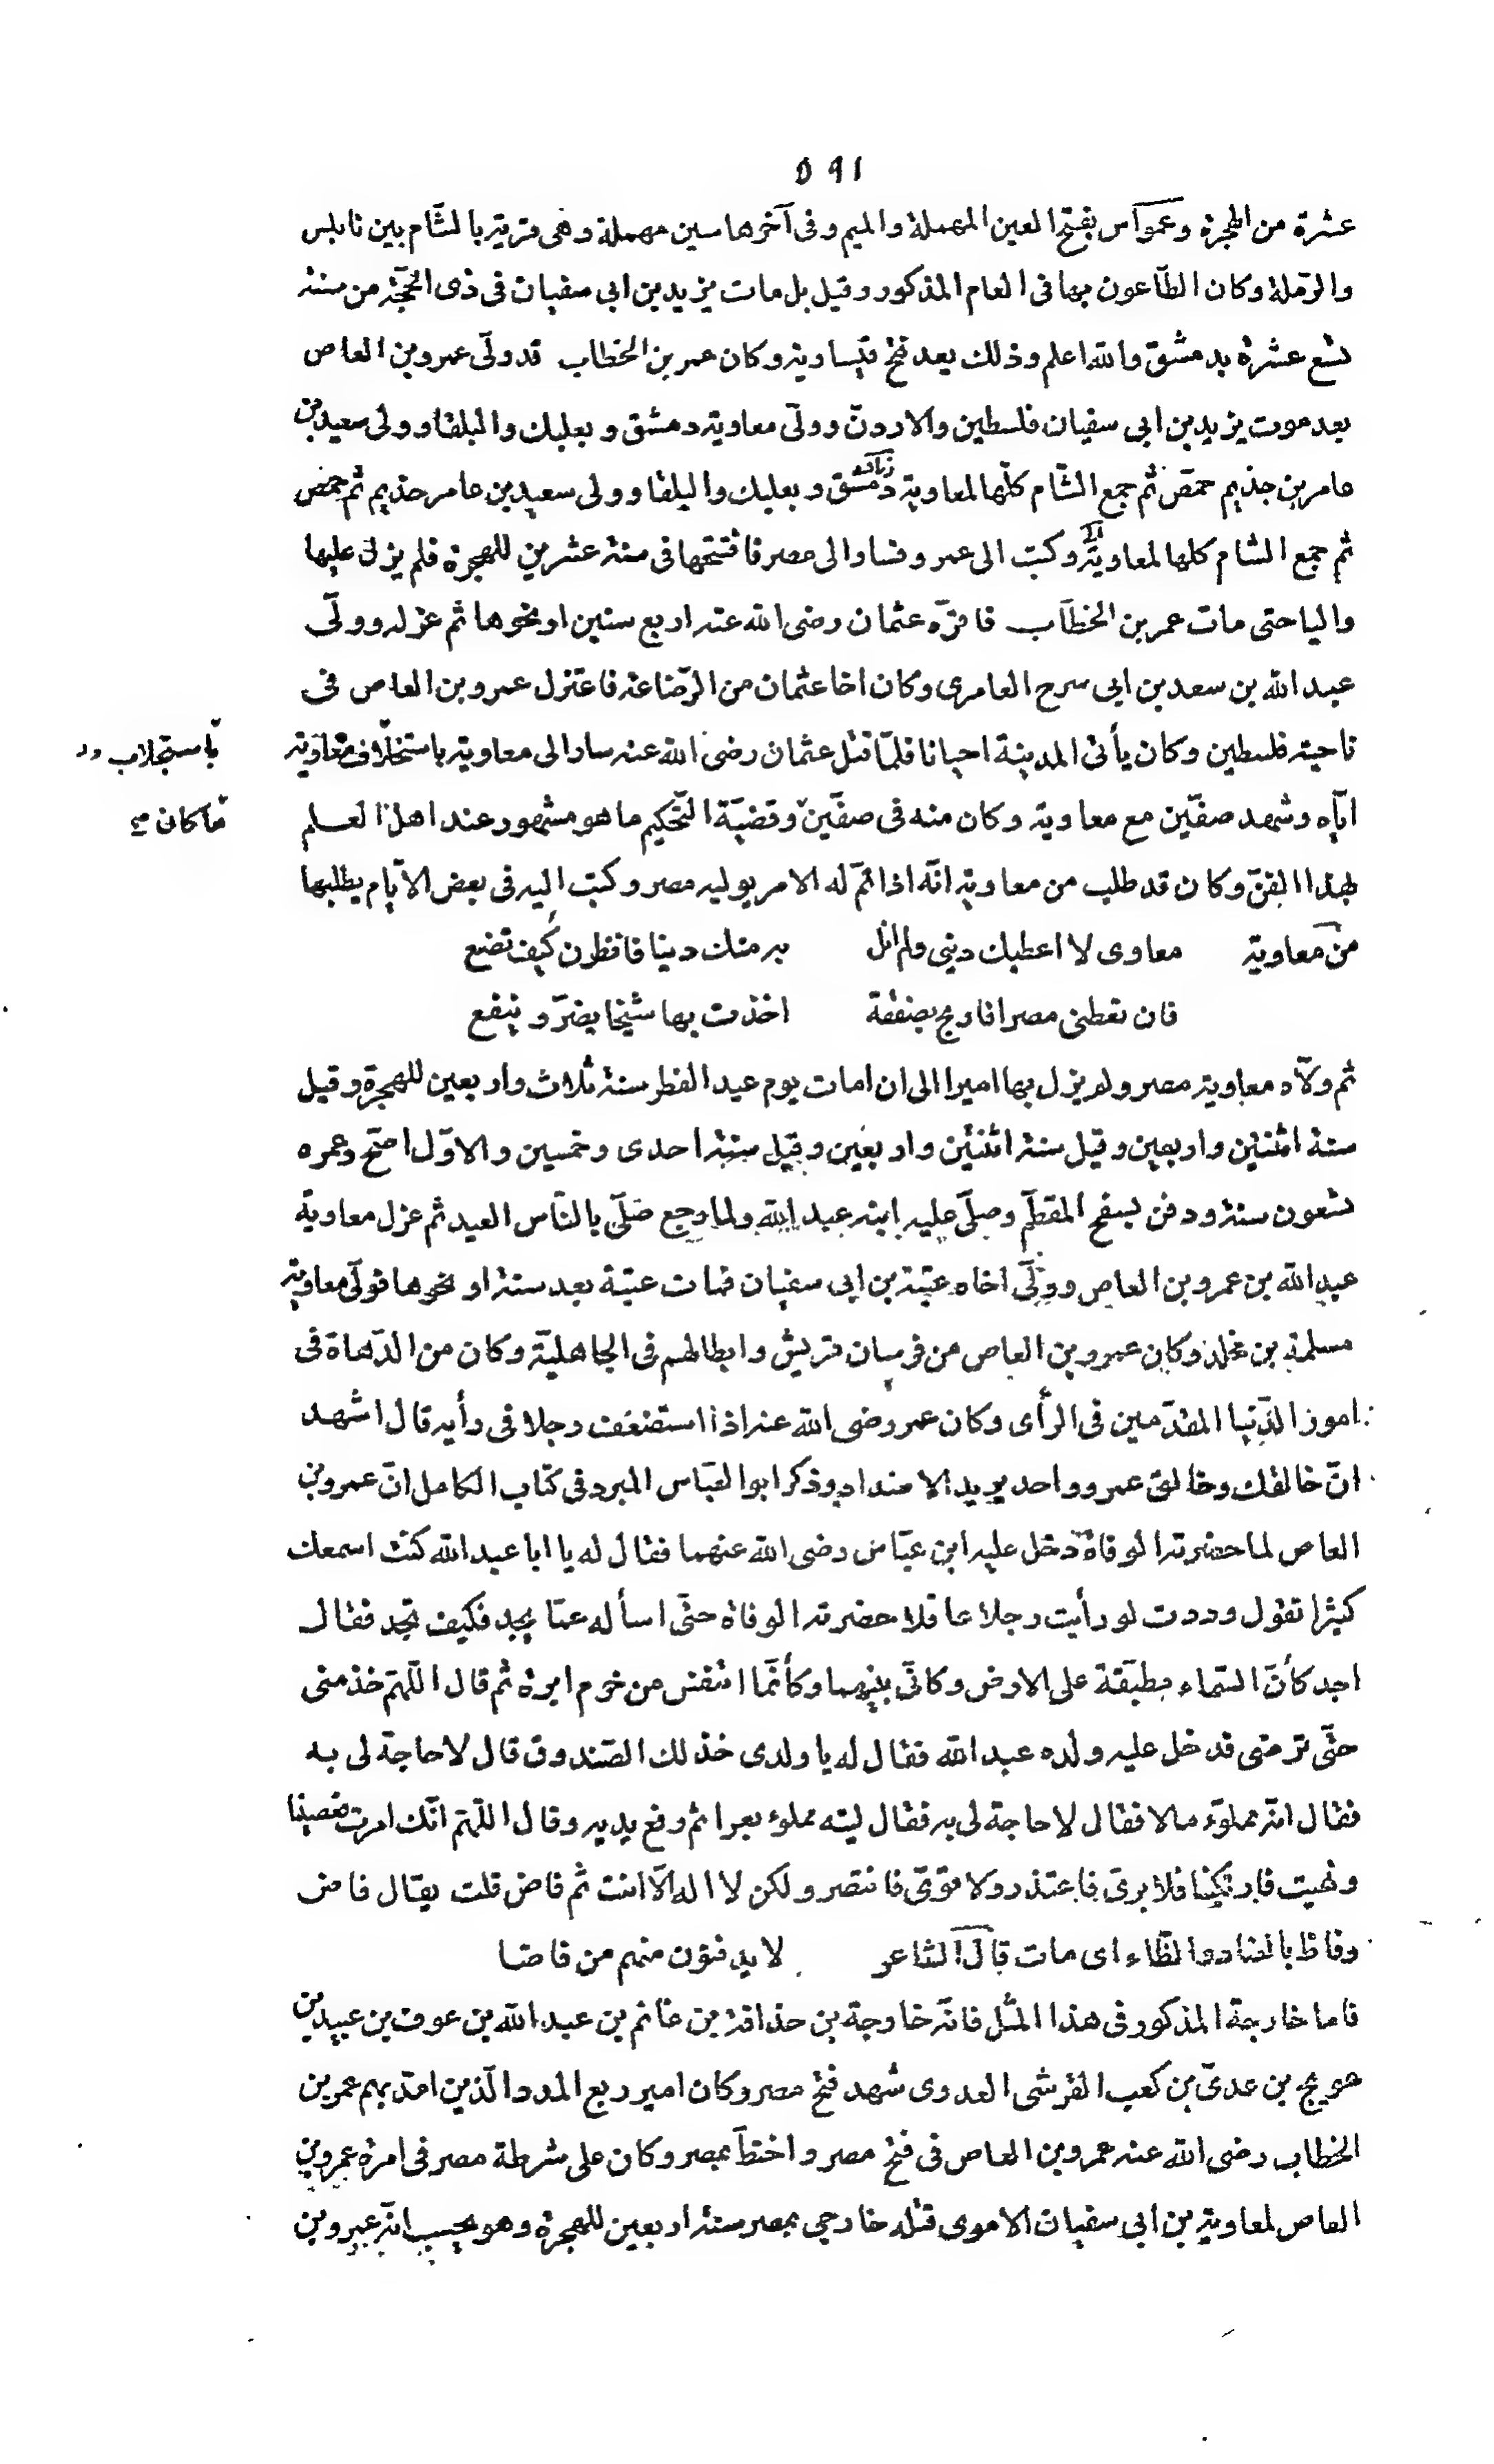 ٥٩١
عشرة من الهجرة وعمواس بفتح العين المهملة والميم وفى آخرها سين مهملة وهى قرية بالشّام بين نابلس
والرّملة وكان الطّاعون بها فى العام المذكور وقيل بل مات يزيد بن ابى سفيان فى ذى الحجّة من سنة
تسع عشرة بدمشق والله اعلم وذلك بعد فتح قيساوية وكان عمر بن الخطاب قد ولّى عمرو بن العاص
بعد موت يزيد بن ابى سفيان فلسطين والاردنّ وولّى معاوية دمشق وبعلبك والبلقا وولى سعيد بن
عامر بن جذيم حمص ثم جمع الشّام كلّها لمعاوية دمشق وبعلبك والبلقا وولى سعيد بن عامر جذيم ثم حمص
ثم جمع الشام كلها لمعاوية وكتب الى عمرو فساوا الى مصر فافتتحها فى سنة عشرين للهجرة فلم يزل عليها
واليا حتى مات عمر بن الخطّاب فاقرّه عثمان رضى الله عنه اربع سنين او نحوها ثم عزله وولّى
عبد الله بن سعد بن ابى سرح العامرى وكان اخا عثمان من الرّضاعة فاعتزل عمرو بن العاص فى
ناحية فلسطين وكان يأتى المدينة احيانا فلمّا قتل عثمان رضى الله عنه سار الى معاوية باستخلاف معاوية
باستجلاب
ايّاه وشهد صفّين مع معاوية وكان منه فى صفّين وقضيّة التّحكيم ما هو مشهور عند اهل العلم
ما كان صح
بهذا الفنّ وكان قد طلب من معاوية انّه اذا تمّ له الامر يوليه مصر وكتب اليه فى بعض الايّام يطلبها
من معاوية معاوى لا اعطيك دينى ولم انل به منك دينا فانظرن كيف تضنع
فان تعطنى مصرا فاربح بصفقة اخذت بها شيخا يضرّ وينفع
ثم ولّاه معاوية مصر ولم يزل بها اميرا الى ان امات يوم عيد الفطر سنة ثلاث واربعين للهجرة وقيل
سنة اثنتين واربعين وقيل سنة اثنتين واربعين وقيل سنة احدى وخمسين والاوّل اصحّ وعمره
تسعون سنة ودفن بسفح المقطّم وصلّى عليه ابنه عبد الله ولما رجع صلّى بالنّاس العيد ثم عزل معاوية
عبد الله بن عمرو بن العاص وولّى اخاه عتبة بن ابى سفيان فمات عتبة بعد سنة او نحوها فولّى معاوية
مسلمة بن مخلد وكان عمرو بن العاص من فرسان قريش وابطالهم فى الجاهليّة وكان من الدّهاة فى
امور الدّنيا المقدّمين فى الرّأى وكان عمر رضى الله عنه اذا استضعف رجلا فى رأيه قال اشهد
انّ خالقك وخالق عمرو واحد يريد الاضداد وذكر ابو العبّاس المبرد فى كتاب الكامل انّ عمرو بن
العاص لما حضرته الوفاة دخل عليه ابن عبّاس رضى الله عنهما فقال له يا ابا عبد الله كنت اسمعك
كثيرا تقول وددت لو رأيت رجلا عاقلا حضرته الوفاة حتّى اسأله عمّا يجد فكيف تجد فقال
اجد كأنّ السّماء مطبقة على الارض وكانّى بينهما وكأنّما اتنفس من خرم ابرة ثم قال اللّهمّ خذ منى
حتّى ترضى فدخل عليه ولده عبد الله فقال له يا ولدى خذ لك الصّندوق قال لا حاجة لى به
فقال انّه مملوّء مالا فقال لا حاجة لى به فقال ليته مملوء بعرا ثم رفع يديه وقال اللّهمّ انّك امرت فعصينا
ونهيت فارتكبنا فلا برئ فاعتذر ولا قوىّ فانتصر ولكن لا اله الّا انت ثم فاض قلت يقال فاض
وفاظ بالضاد والظّاء اى مات قال الشاعر لا يدفنون منهم من فاضا
فاما خارجة المذكور فى هذا المثل فانّه خارجة بن حذافة بن غانم بن عبد الله بن عوف بن عبيد بن
عويج بن عدىّ بن كعب القرشى العدوى شهد فتح مصر وكان امير ربع المدد الّذين امدّ بهم عمر بن
الخطاب رضى الله عنه عمرو بن العاص فى فتح مصر واختطّ بمصر وكان على شرطة مصر فى امرة عمرو بن
العاص لمعاوية بن ابى سفيان الاموى قتله خارجى بمصر سنة اربعين للهجرة وهو يحسب انّه عمرو بن